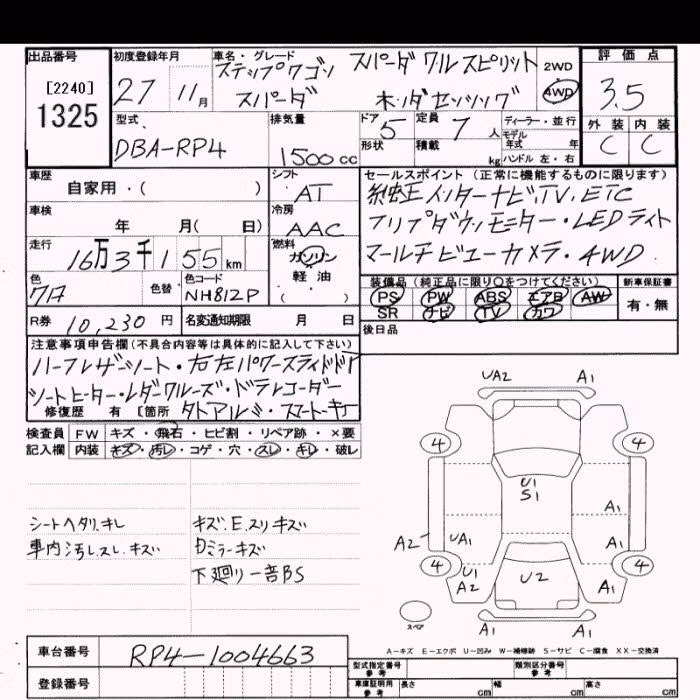 出品番号
[2240]
1325
初度登録年月
27 11月
車名・グレード
ステップワゴン スパーダ クールスピリット
スパーダ ホンダセンシング
2WD
4WD
評価点
3.5
外装 内装
C C
型式
DBA-RP4
排気量
1500cc
ドア 5
形状
定員 7人
積載 kg
ディーラー・並行
モデル
年式 年
ハンドル 左・右
車歴
自家用・( )
シフト
AT
車検
年 月( 日)
冷房
AAC
走行
16万3千155km
燃料
ガソリン
軽・油
( )
色
クロ
色替
色コード
NH812P
R券 10,230円
名変通知期限 月 日
セールスポイント (正常に機能するものに限ります)
純正インターナビ,TV,ETC
フリップダウンモニター・LEDライト
マルチビューカメラ・4WD
装備品(純正品に限り○をつけてください)
PS PW ABS エアB AW
SR ナビ TV カワ
新車保証書
有・無
後日品
注意事項申告欄(不具合内容等は具体的に記入して下さい)
ハーフレザーシート・右左パワースライドドア
シートヒーター・レーダークルーズ・ドラレコーダー
修復歴 有 [箇所
検査員 FW キズ・飛石・ヒビ割・リペア跡・×要
記入欄 内装 キズ・汚レ・コゲ・穴・スレ・キレ・破レ
シートヘタリ.キレ
車内汚レ.スレ.キズ
キズ.E.スリキズ
ミラーキズ
下廻り一部S
UA2 A1
4 4
U1
S1
A1
A2 UA1 A1
4 4
U1
A2
U2
A1
A1 A1
スペア
A-キズ E-エクボ U-凹み W-補修跡 S-サビ C-腐食 XX-交換済
車台番号 RP4-1004663
登録番号
型式指定番号
参考
類別区分番号
参考
車庫証明用
参考
長さ cm 幅 cm 高さ cm